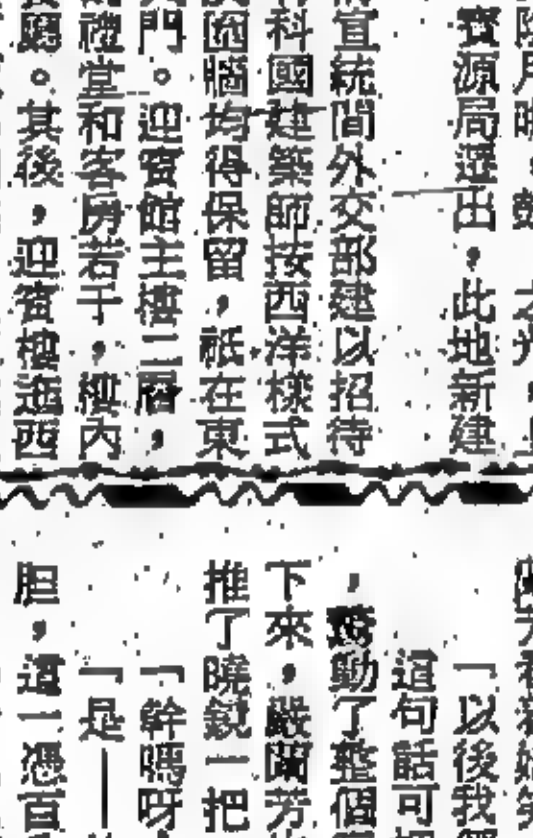 寶源局遷出，此地新建
宣統間外交部建以招待
科國建築師按西洋樣式
囪牆均得保留，祇在東
門。迎賓館主樓二層，
禮堂和客房若干，樓內
廳。其後，迎賓樓迤西
「以後我
這句話可
，驚動了整個
下來，嚴蘭芳
推了曉鏡一把
「幹嗎呀
「是——
胆，這一憑百